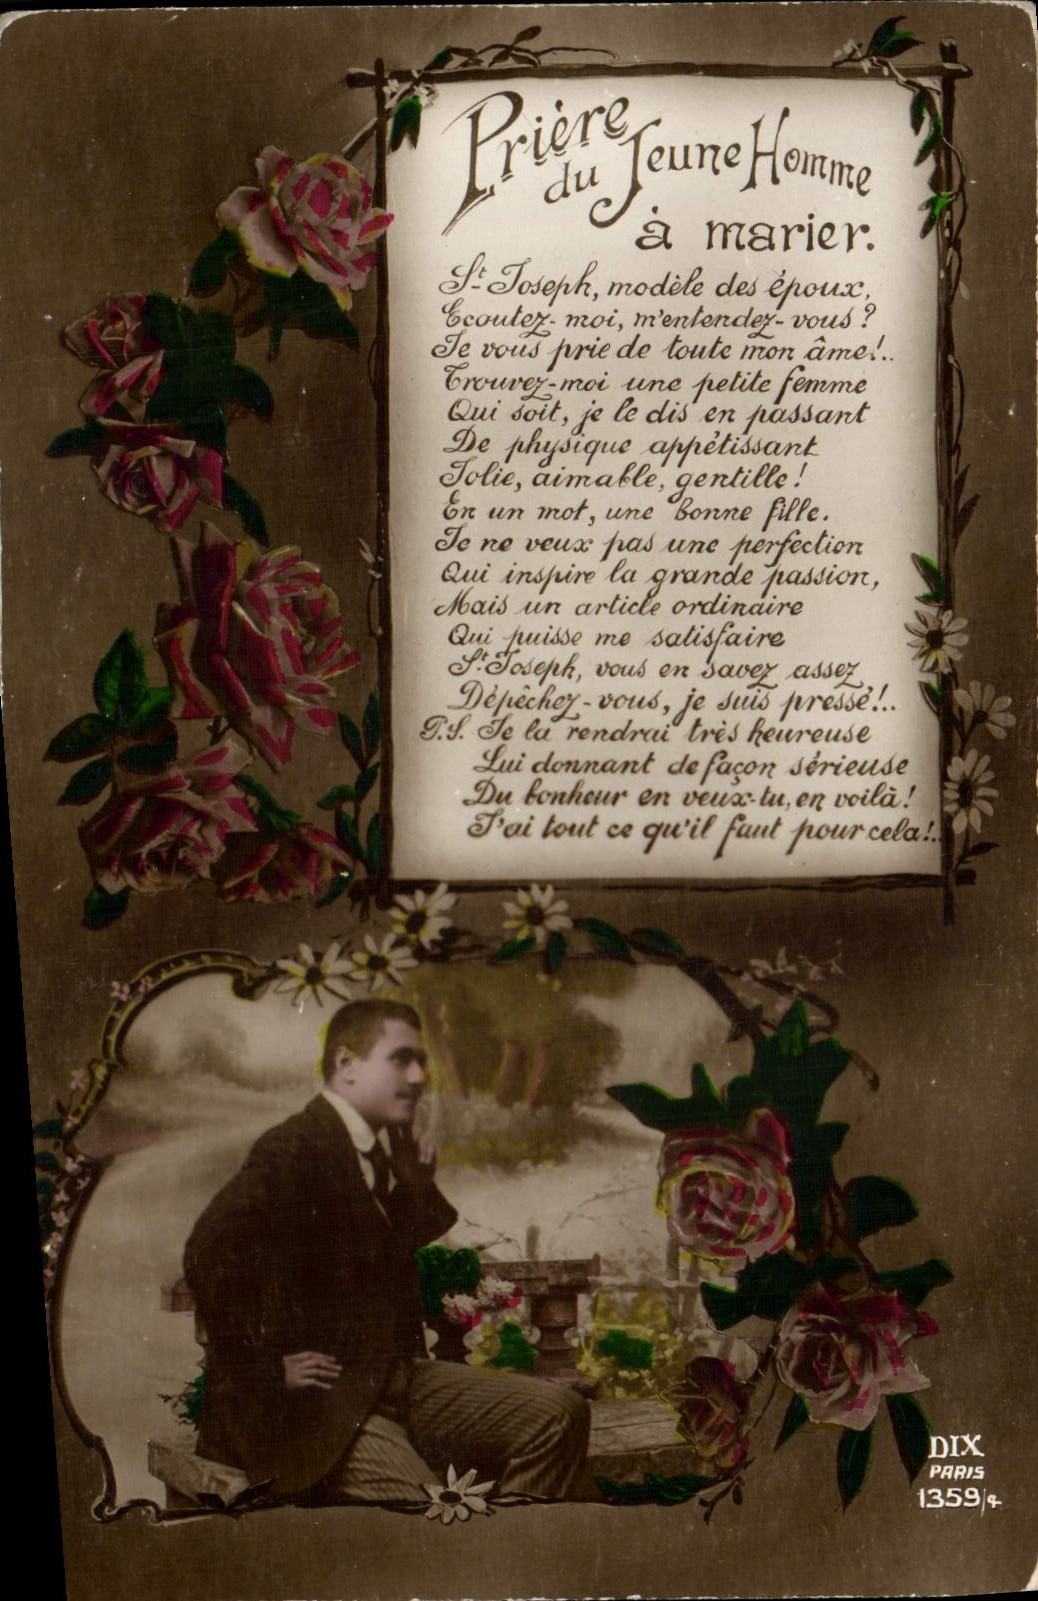 Prière
du Jeune Homme
à marier.
St Joseph, modèle des époux,
Ecoutez-moi, m'entendez-vous ?
Je vous prie de toute mon âme!..
Trouvez-moi une petite femme
Qui soit, je le dis en passant
De physique appétissant
Jolie, aimable, gentille !
En un mot, une bonne fille.
Je ne veux pas une perfection
Qui inspire la grande passion,
Mais un article ordinaire
Qui puisse me satisfaire
St Joseph, vous en savez assez,
Dépêchez-vous, je suis pressé!..
P.S. Je la rendrai très heureuse
Lui donnant de façon sérieuse
Du bonheur en veux-tu, en voilà !
J'ai tout ce qu'il faut pour cela!..
DIX
PARIS
1359/4